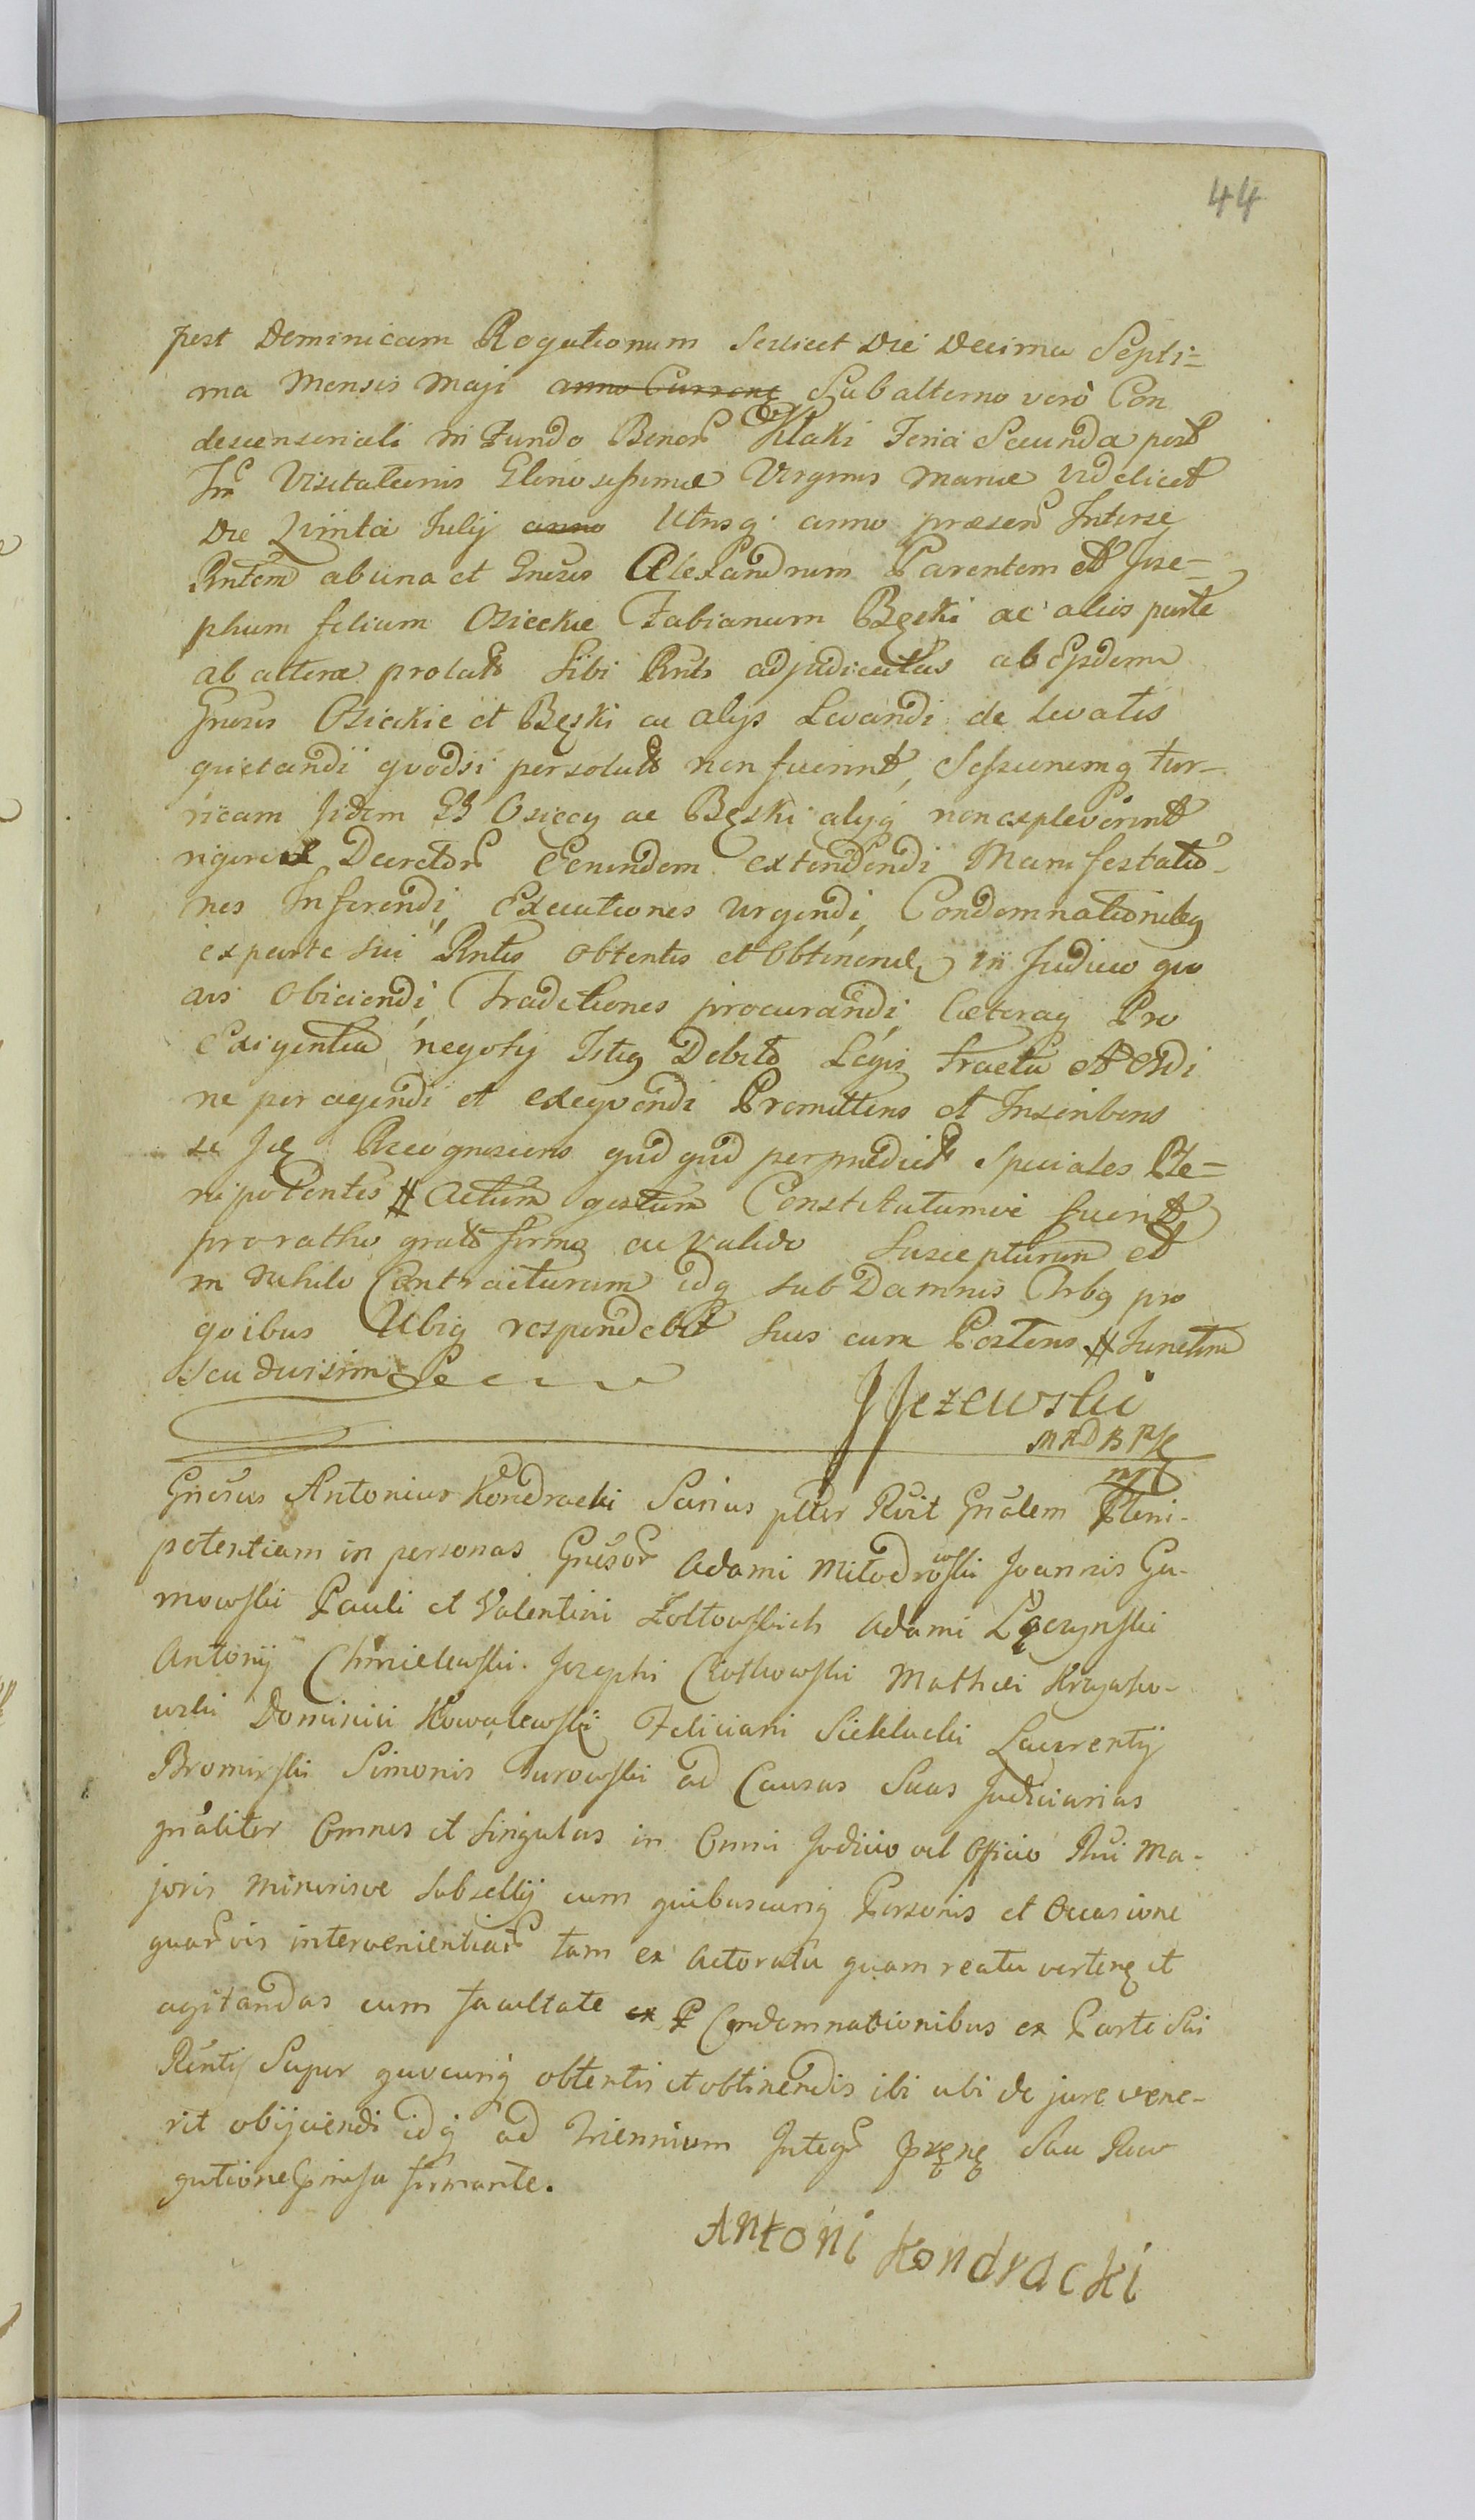 44
post Dominicam Rogationum scilicet Die Decima Septi=
ma Mensis Maji anno Curren Subalterno verò Con
descensoriali in Fundo Bonor Kłaki Feria Secunda post
Fm Visitationis Gloriosissimae Virginis Mariae videlicet
Die Qvinta Julij anno Utrusq anno praesen Interse
Rntem ab una et Gnesos Alexandrum Parentem et Jose=
phum filium Osieckie Fabianum Bęski ac alios parte
ab altera prolatt Sibi Rnti adjudicatas ab Eisdem
Gnosis Osieckie et Bęski ac alijs Levandi de levatis
quietandi qvodsi persolutt non fuerint, Sessionemq tur-
ricam Jidem GG Osieccy ac Bęski alijq non expleverint
rigore Decretor Eorundem extendendi Manifestatio-
nes Inferendi, Executiones urgendi, Condemnationibq
ex parte sui Rntis obtentis et obtinend in Judicio qvo
vis obiciendi, Traditiones procurandi, Caeteraq Pro
Exigentia negotij Istiq Debito Legis tractu et ordi
ne peragendi et exeqvendi Promittens et Inscribens
se Recognoscens qvidqvid per praedict Speciales Ple=
nipotentes # Actum gestum Constitutumve fuerit
pro ratho grato firmo ac valido Suscepturum et
in nihilo Contraiturum idq sub Damnis Orbq pro
qvibus Ubiq respondebit suis cum Posteris # Junctim
seu divisim
JJezewski
MRDBPSC
mp
Gnesus Antonius Kondracki Sanus ptter Rvit Gnalem Pleni-
potentiam in personas Gnesor Adami Miłodrowski Joannis Gu-
mowski Pauli et Valentini Żołtowskich Adami Łączynski
Antonij Chmielewski. Josephi Chotkowski Mathaei Krajewo-
wski Dominici Kowalewski Feliciani Siekłucki Laurentij
Bromirski Simonis Turowski ad Causas Suas Judiciarias
gnaliter Omnes et Singulas in Omni Judicio vel Officio Rni Ma-
joris Minorisve Subsellij cum quibuscunq Personis et Occasione
quarvis intervenientiar tam ex Actoratu quam reatu verten et
agitandas cum facultate ex P Condemnationibus ex Parte Sui
Rentis Super quocunq obtentis et obtinendis ibi ubi de jure vene-
rit obijciendi idq ad Triennium Integr Sua Rcov
gutione firmante.
Antoni Kondracki